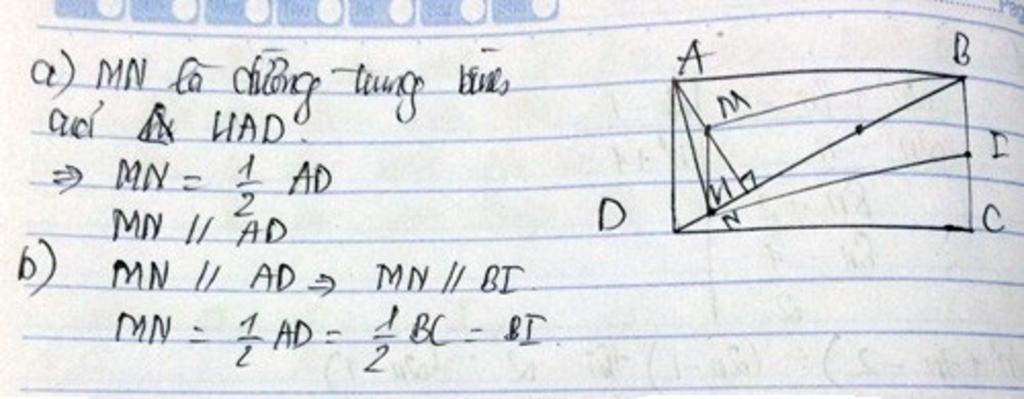 a) MN là đường trung bình
của HAD.
⇒ MN = 1/2 AD
MN // AD
b) MN // AD ⇒ MN // BI
MN = 1/2 AD = 1/2 BC = BI.
A
B
M
I
H
D
N
C